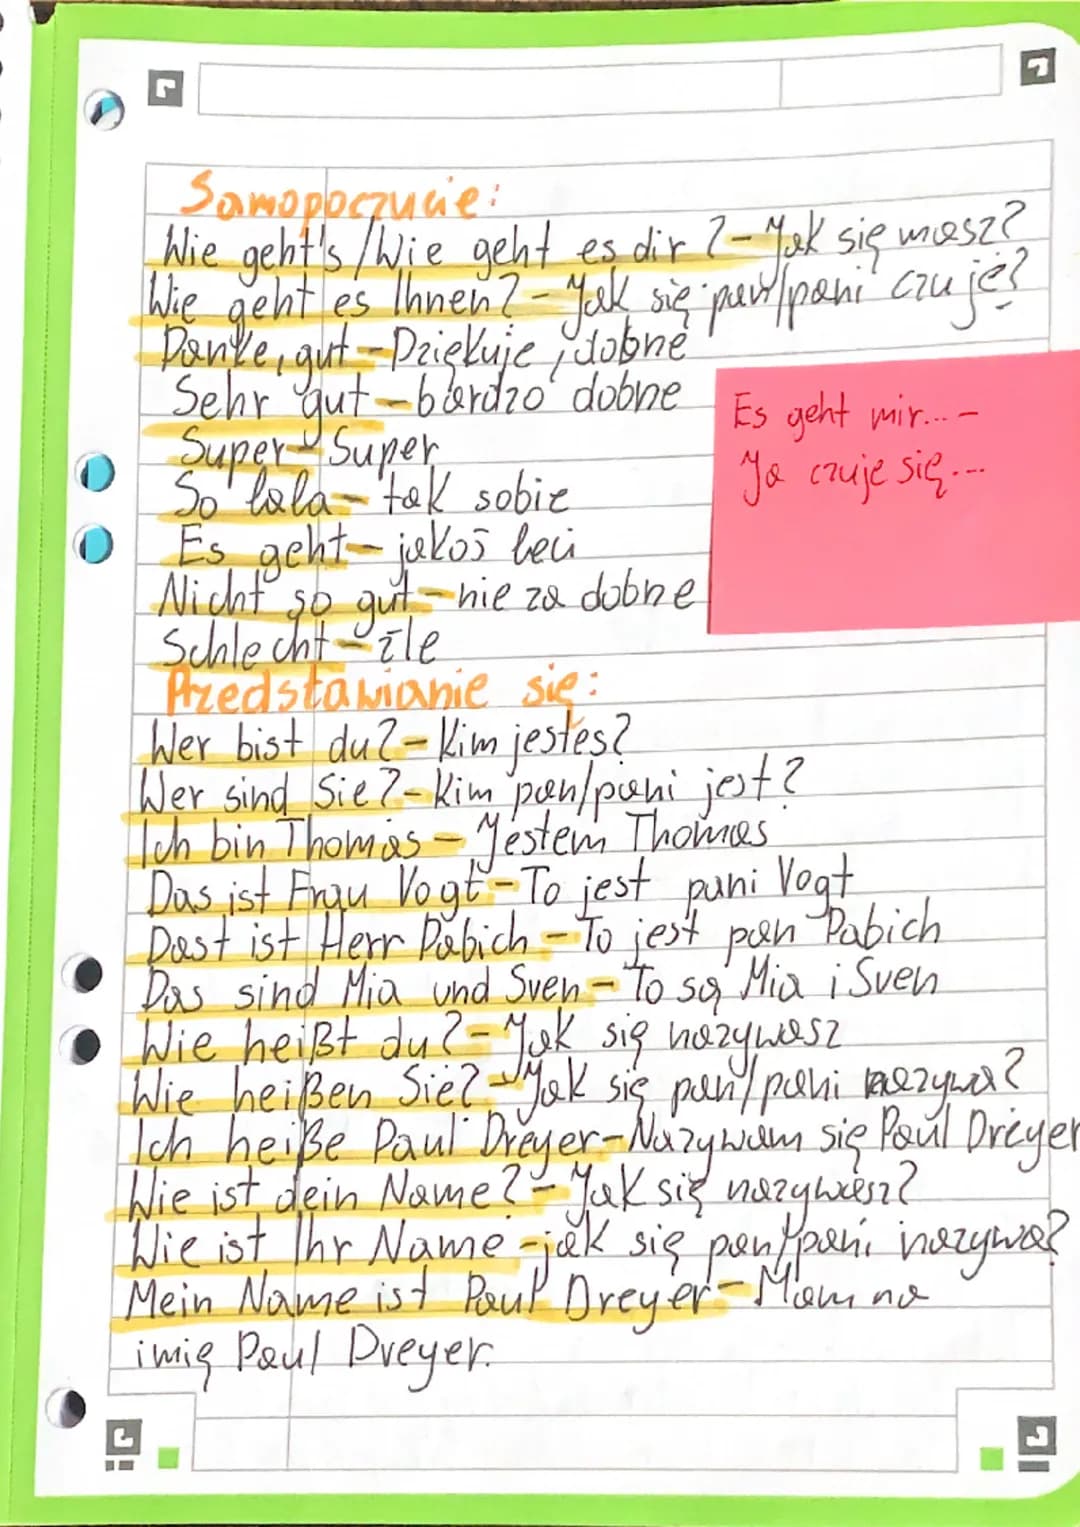 Samopoczucie:
Wie geht's/Wie geht es dir?-Jak się masz?
Wie geht es Ihnen?-Jak się pan/pani czuje?
Danke, gut-Dziękuje, dobrze
Sehr gut-bardzo dobrze
Super-Super
So lala-tak sobie
Es geht-jakoś leci
Nicht so gut-nie za dobrze
Schlecht-źle
Es geht mir...-
Ja czuje się...
Przedstawianie się:
Wer bist du?-Kim jesteś?
Wer sind Sie?-Kim pan/pani jest?
Ich bin Thomas-Jestem Thomas
Das ist Frau Vogt-To jest pani Vogt
Dast ist Herr Pabich-To jest pan Pabich
Das sind Mia und Sven-To są Mia i Sven
Wie heißt du?-Jak się nazywasz
Wie heißen Sie?-Jak się pan/pani nazywa?
Ich heiße Paul Dreyer-Nazywam się Paul Dreyer
Wie ist dein Name?-Jak się nazywasz?
Wie ist Ihr Name-jak się pan/pani nazywa?
Mein Name ist Paul Dreyer-Mam na
imię Paul Dreyer.